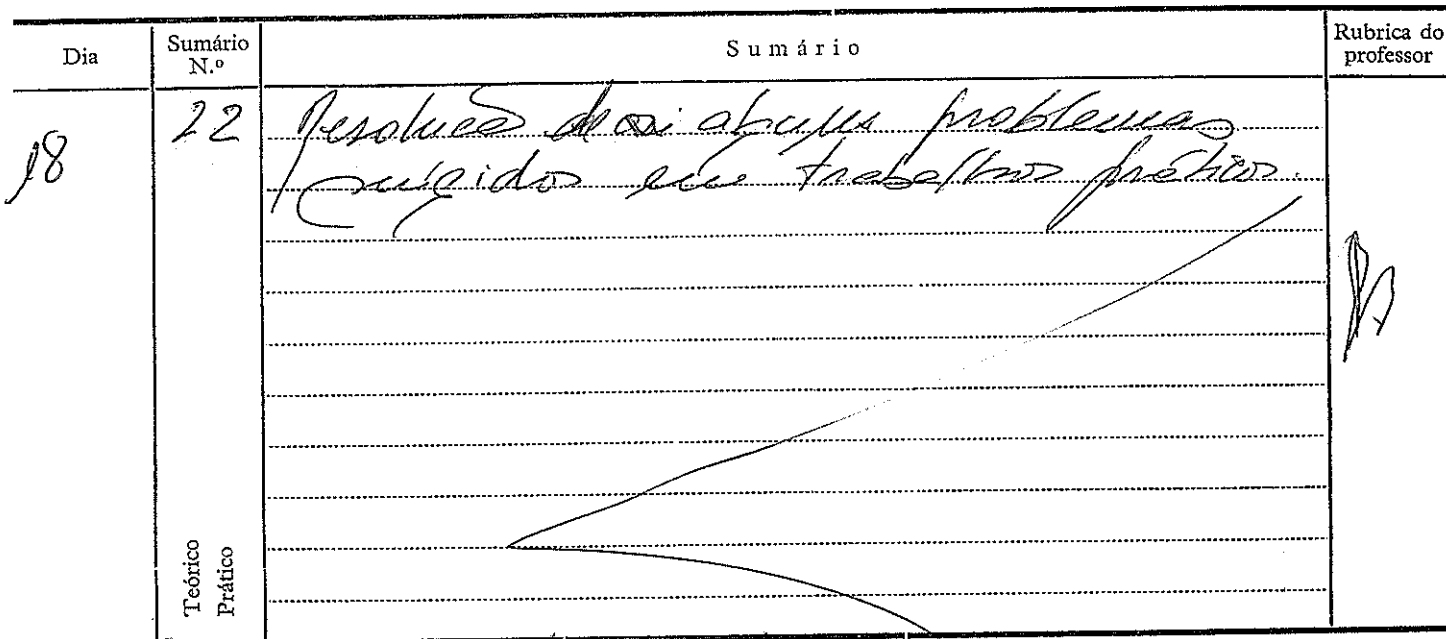 Dia
Sumário N.º
Sumário
Rubrica do professor
18
22
Resolução de alguns problemas
surgidos em trabalhos práticos.
Teórico
Prático